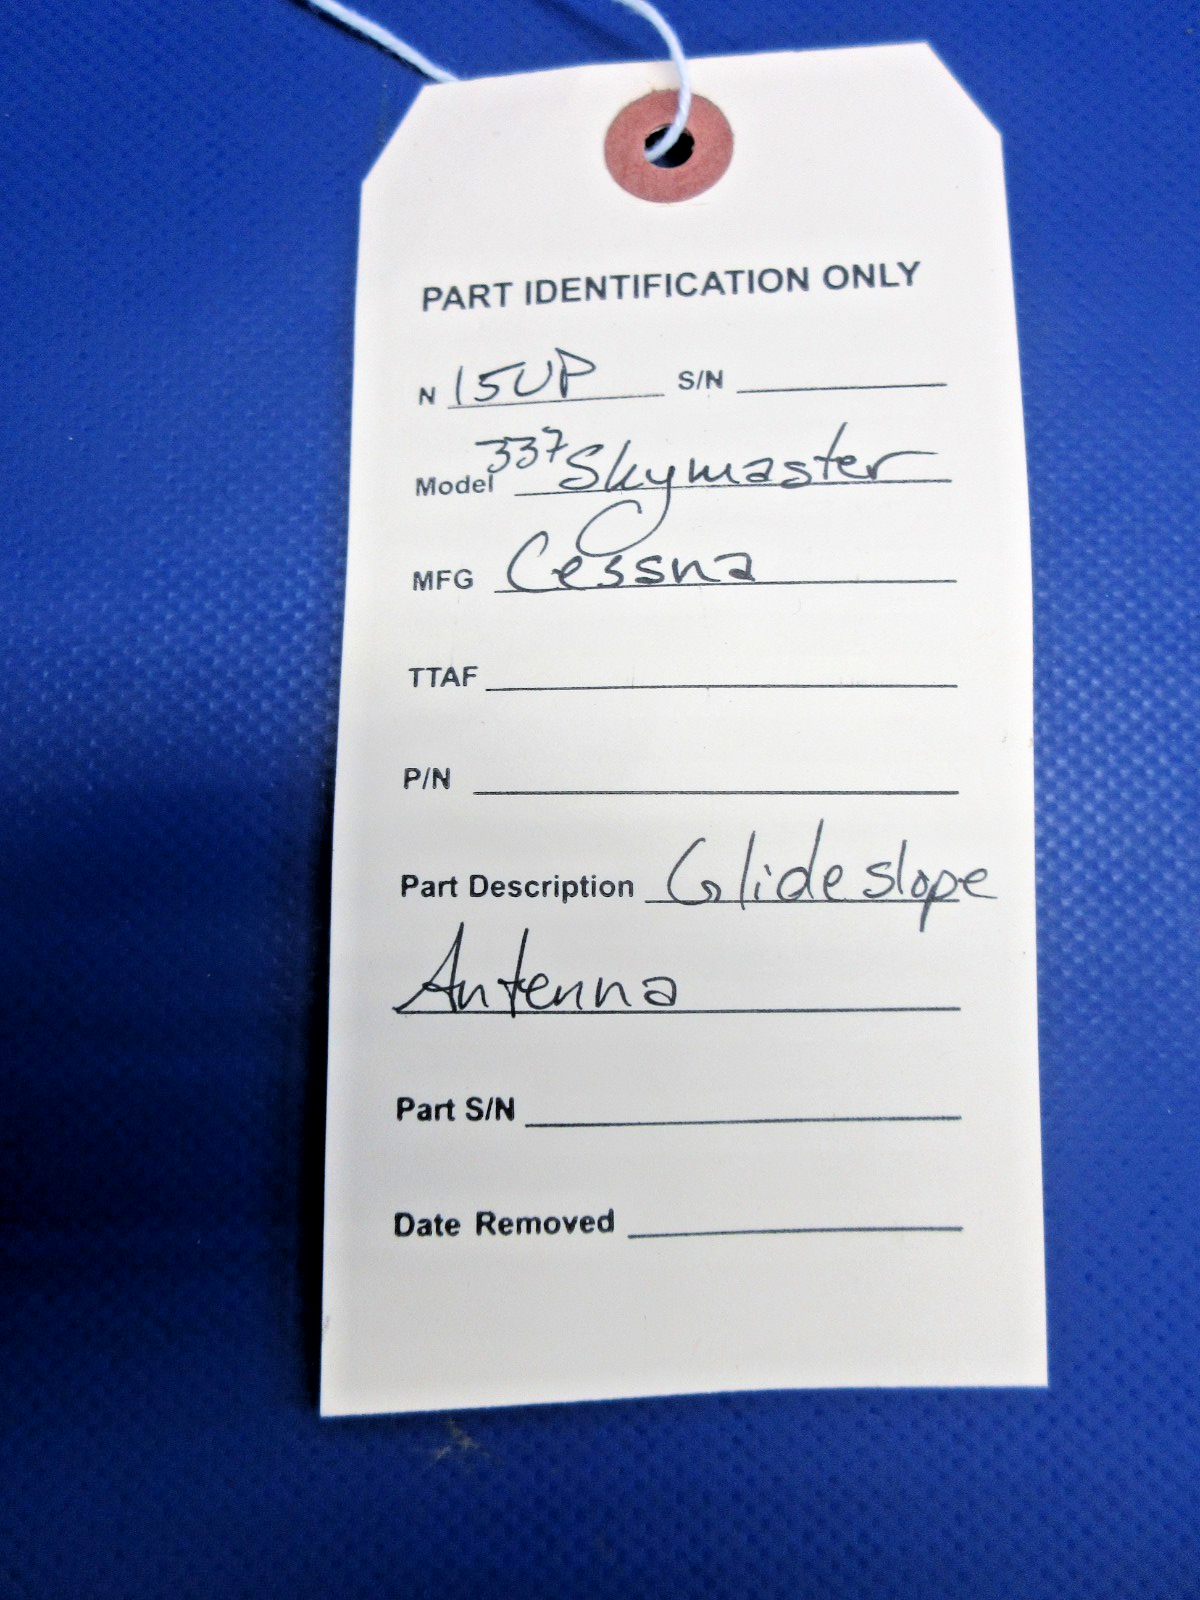 PART IDENTIFICATION ONLY
N 15UP S/N
Model 337 Skymaster
MFG Cessna
TTAF
P/N
Part Description Glideslope
Antenna
Part S/N
Date Removed